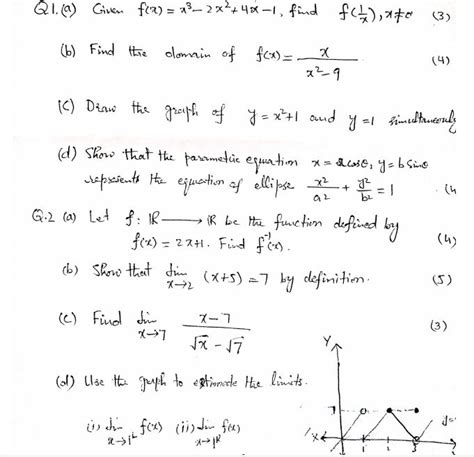 Q1.(a) Given f(x) = x³ - 2x² + 4x - 1, find f(1/x), x ≠ 0 (3)
(b) Find the domain of f(x) = x / (x² - 9) (4)
(c) Draw the graph of y = x² + 1 and y = 1 simultaneously
(d) Show that the parametric equation x = a cosθ, y = b sinθ
represents the equation of ellipse x²/a² + y²/b² = 1 (4
Q.2 (a) Let f: ℝ → ℝ be the function defined by
f(x) = 2x+1. Find f⁻¹(x). (4)
(b) Show that lim x→2 (x+5) = 7 by definition. (5)
(c) Find lim x→7 (x - 7) / (√x - √7) (3)
(d) Use the graph to estimate the limits.
(i) lim f(x) (ii) lim f(x)
Y
1
X
1 2 3
y=